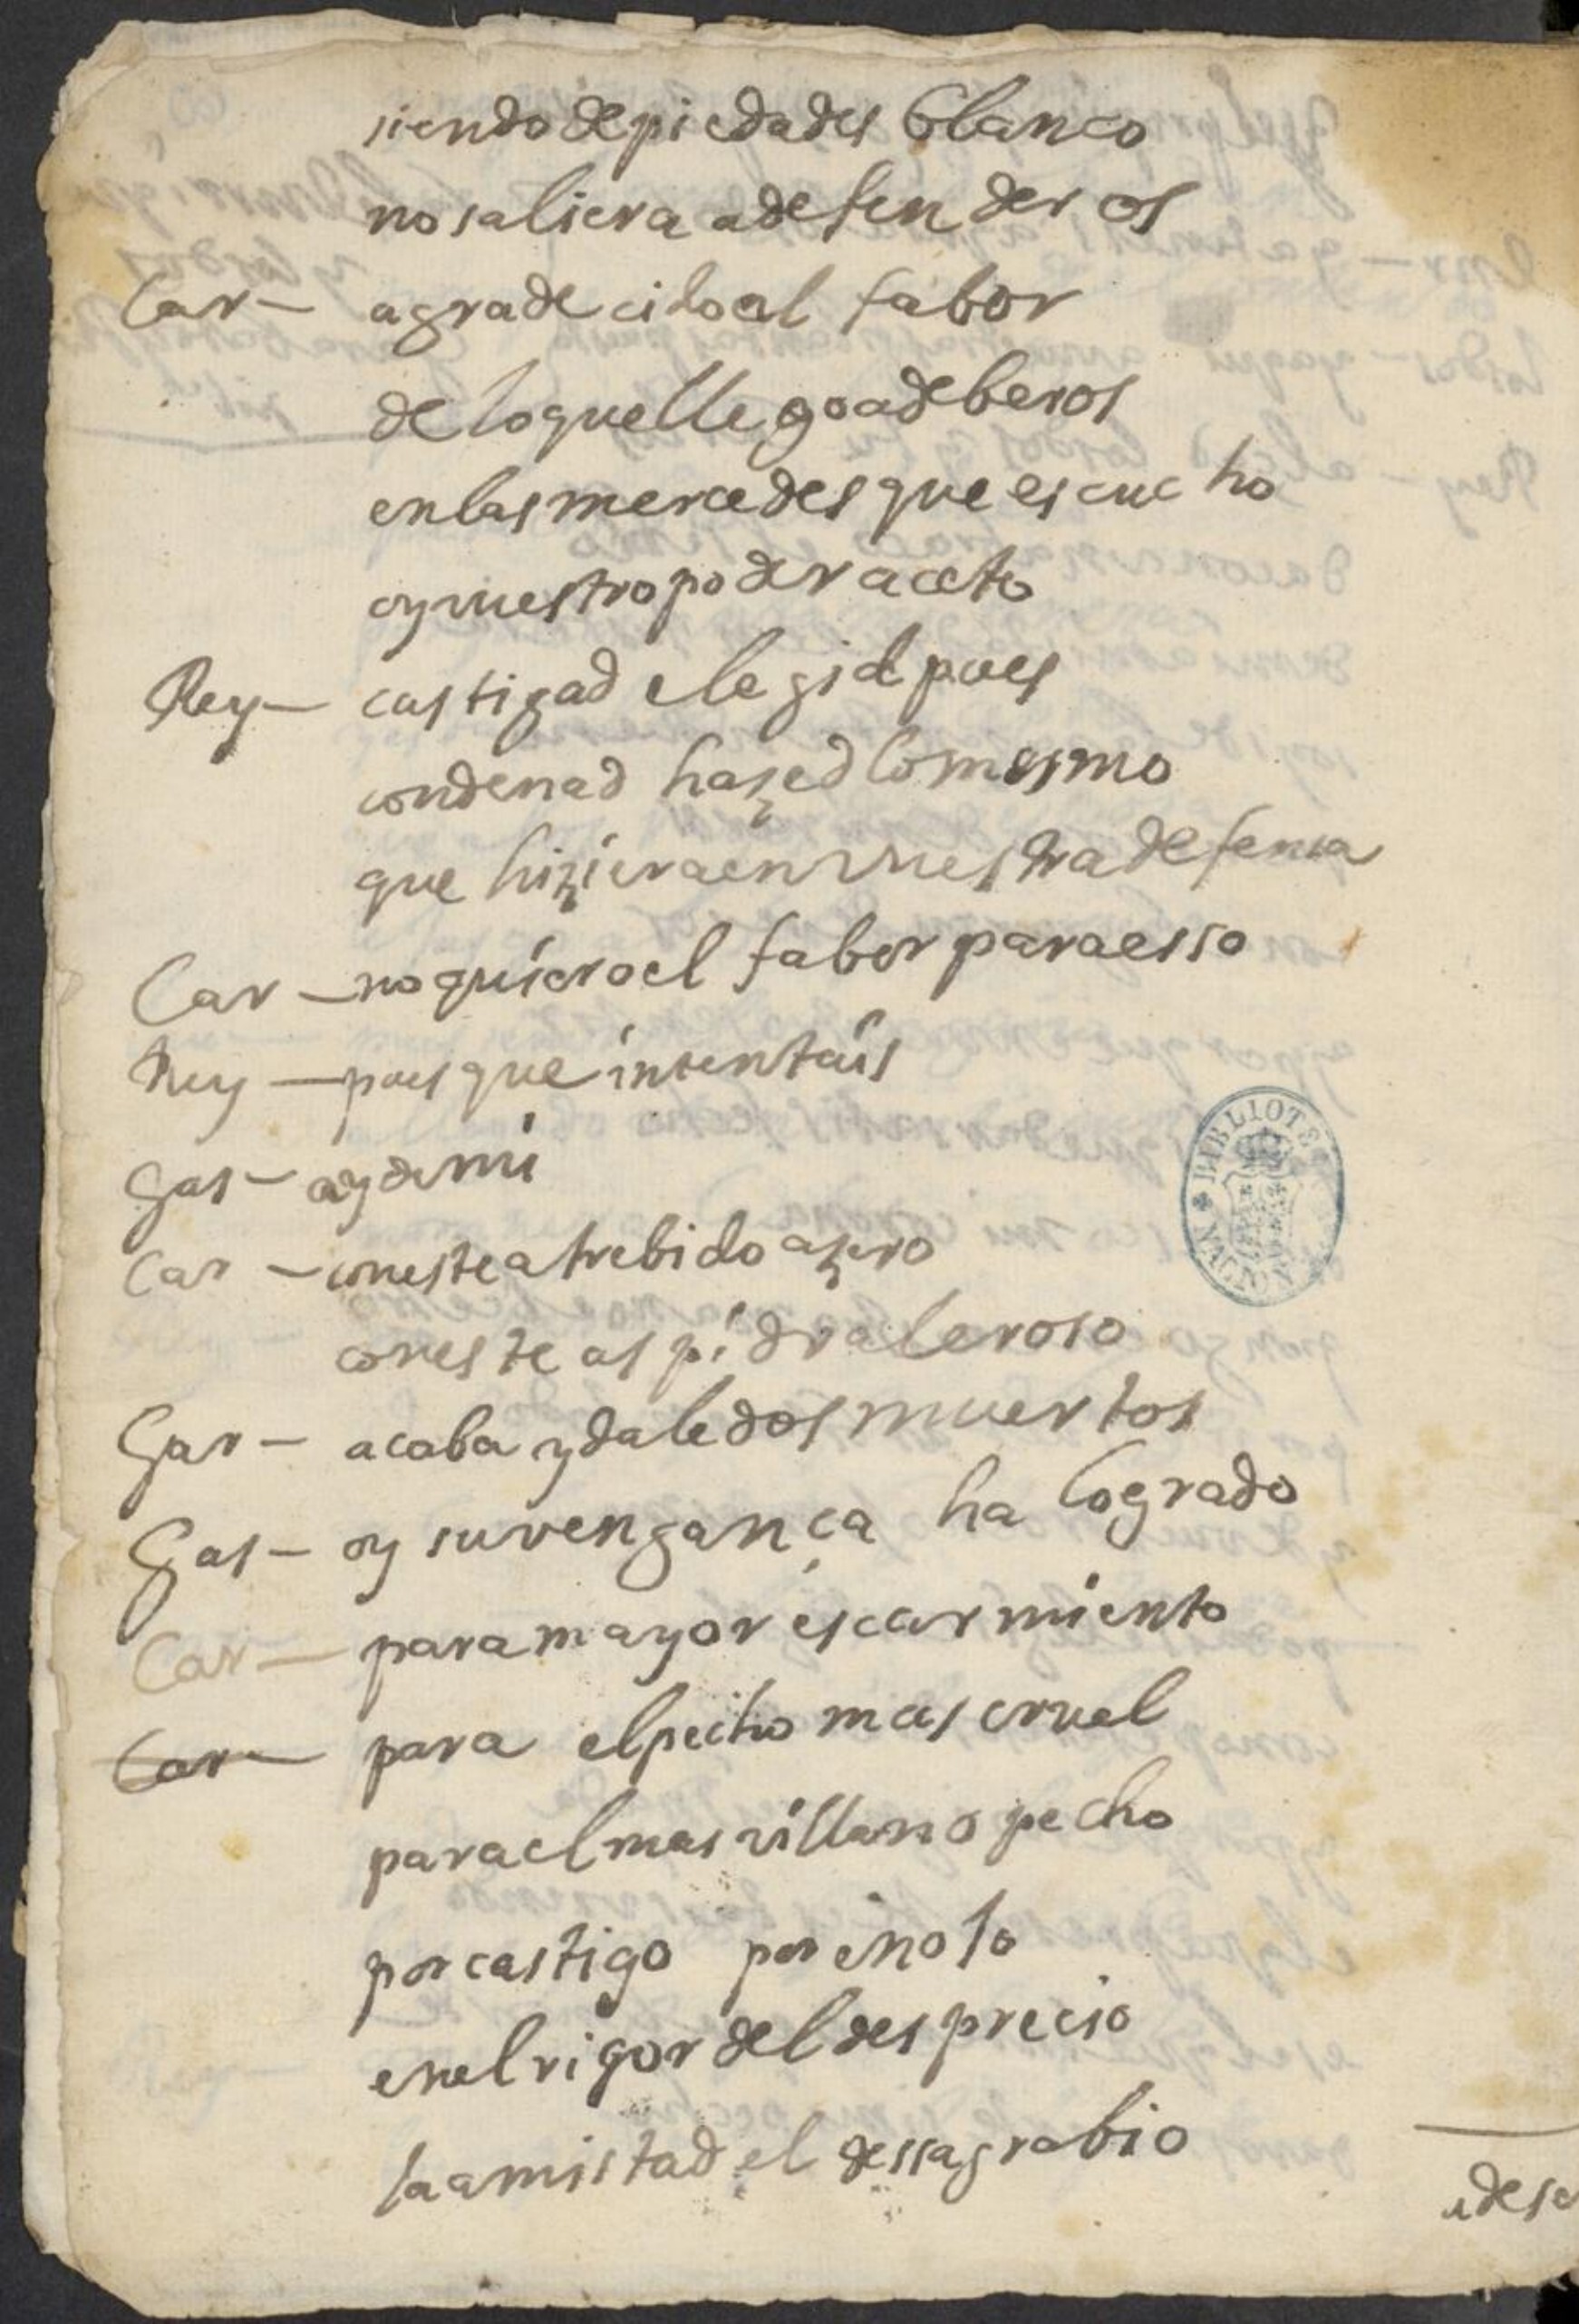 siendo de piedades blanco
no saliera a defenderos
Car— agradecido al fabor
de lo que llego a deberos
en las mercedes que escucho
oy vuestro poder aceto
Rey— castigad elegid pues
condenad haçed lo mesmo
que hiziera en vuestra defensa
Car— no quiero el fabor para esso
Rey— pues que intentais
Gas— ay de mi
Car— con este atrebido açero
con este aspid valeroso
Gar— acaba y dale dos muertos
Gas— oy su vengança ha logrado
Car— para mayor escarmiento
Car— para el pecho mas cruel
para el mas villano pecho
por castigo por enojo
en el rigor del desprecio
la amistad el dessagrabio
BIBLIOTECA NACIONAL